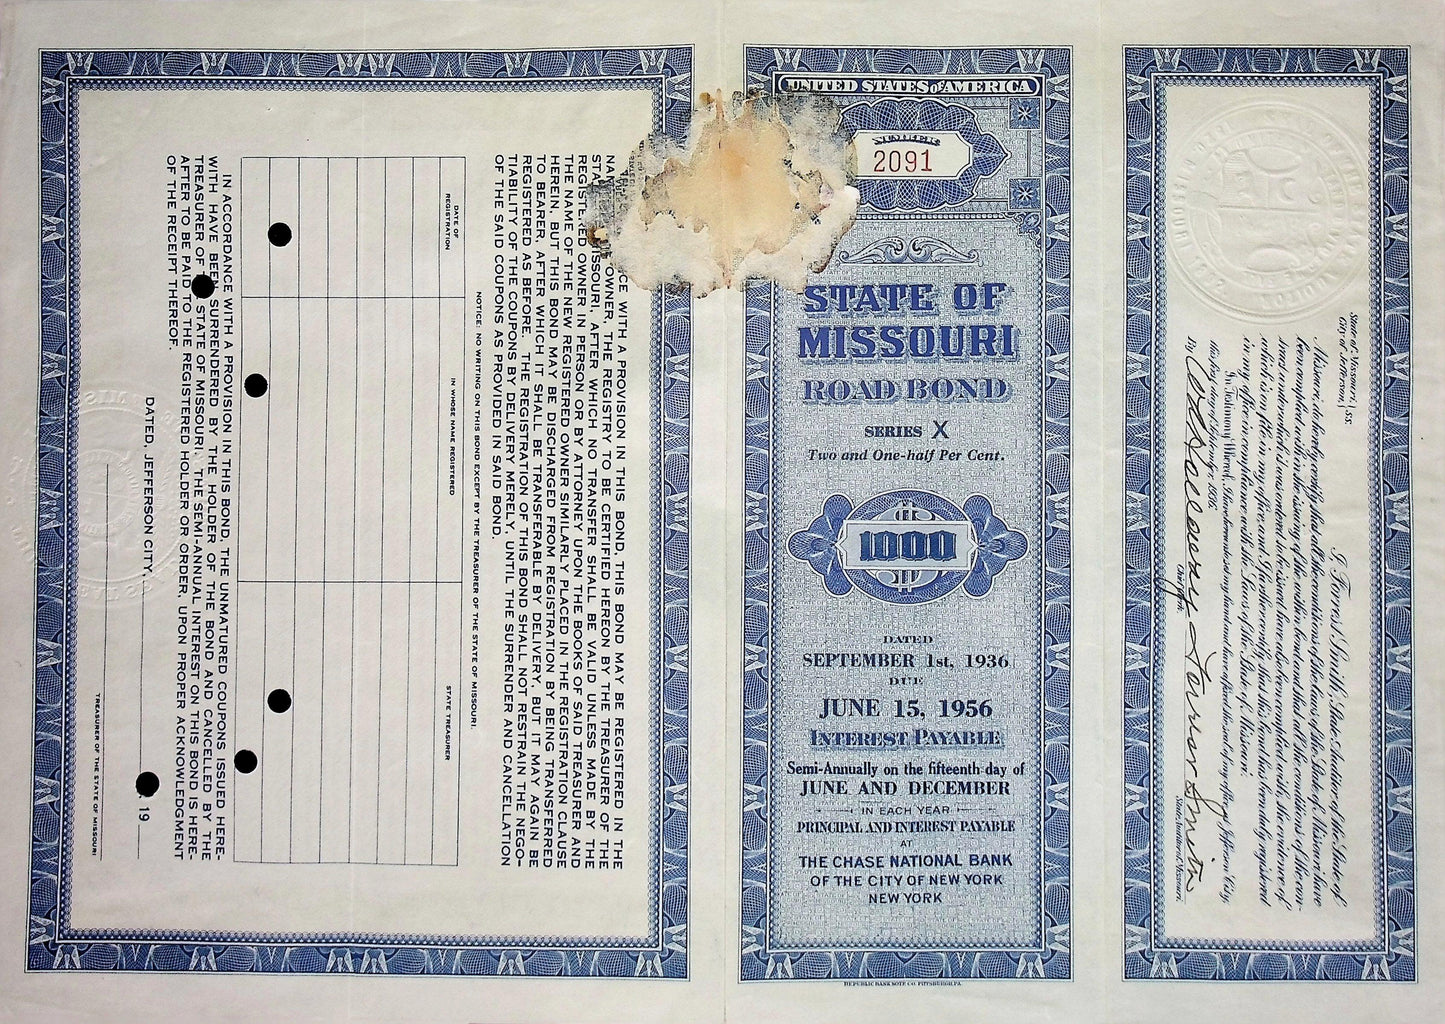 UNITED STATES OF AMERICA
NUMBER
2091
STATE OF
MISSOURI
ROAD BOND
SERIES X
Two and One-half Per Cent.
1000
DATED
SEPTEMBER 1st, 1936
DUE
JUNE 15, 1956
INTEREST PAYABLE
Semi-Annually on the fifteenth day of
JUNE AND DECEMBER
IN EACH YEAR
PRINCIPAL AND INTEREST PAYABLE
AT
THE CHASE NATIONAL BANK
OF THE CITY OF NEW YORK
NEW YORK
REPUBLIC BANK NOTE CO. PITTSBURGH, PA.
State of Missouri,
City of Jefferson, } ss.
I, Forrest Smith, State Auditor of the State of
Missouri, do hereby certify that all the conditions of the laws of the State of Missouri have
been complied with in the issuing of the within bond and that all the conditions of the con-
tract under which it was ordered to be issued have also been complied with and the evidence of
which is on file in my office, and I further certify that this bond has been duly registered
in my office in compliance with the Laws of the State of Missouri.
In Testimony Whereof, I hereunto
this first day of September, 1936.
By
Chief Clerk
Forrest Smith
State Auditor of Missouri.
CE WITH A PROVISION IN THIS BOND, THIS BOND MAY BE REGISTERED IN THE
OWNER, THE REGISTRY TO BE CERTIFIED HEREON BY THE TREASURER OF THE
MISSOURI, AFTER WHICH NO TRANSFER SHALL BE VALID UNLESS MADE BY THE
REGISTERED OWNER IN PERSON OR BY ATTORNEY UPON THE BOOKS OF SAID TREASURER AND
THE NAME OF THE NEW REGISTERED OWNER SIMILARLY PLACED IN THE REGISTRATION CLAUSE
HEREIN, BUT THIS BOND MAY BE DISCHARGED FROM REGISTRATION BY BEING TRANSFERRED
TO BEARER, AFTER WHICH IT SHALL BE TRANSFERABLE BY DELIVERY, BUT IT MAY AGAIN BE
REGISTERED AS BEFORE. THE REGISTRATION OF THIS BOND SHALL NOT RESTRAIN THE NEGO-
TIABILITY OF THE COUPONS BY DELIVERY MERELY, UNTIL THE SURRENDER AND CANCELLATION
OF THE SAID COUPONS AS PROVIDED IN SAID BOND.
NOTICE: NO WRITING ON THIS BOND EXCEPT BY THE TREASURER OF THE STATE OF MISSOURI.
DATE OF REGISTRATION
IN WHOSE NAME REGISTERED
STATE TREASURER
IN ACCORDANCE WITH A PROVISION IN THIS BOND, THE UNMATURED COUPONS ISSUED HERE-
WITH HAVE BEEN SURRENDERED BY THE HOLDER OF THE BOND AND CANCELLED BY THE
TREASURER OF STATE OF MISSOURI. THE SEMI-ANNUAL INTEREST ON THIS BOND IS HERE-
AFTER TO BE PAID TO THE REGISTERED HOLDER OR ORDER, UPON PROPER ACKNOWLEDGMENT
OF THE RECEIPT THEREOF.
DATED, JEFFERSON CITY, 19
TREASURER OF THE STATE OF MISSOURI